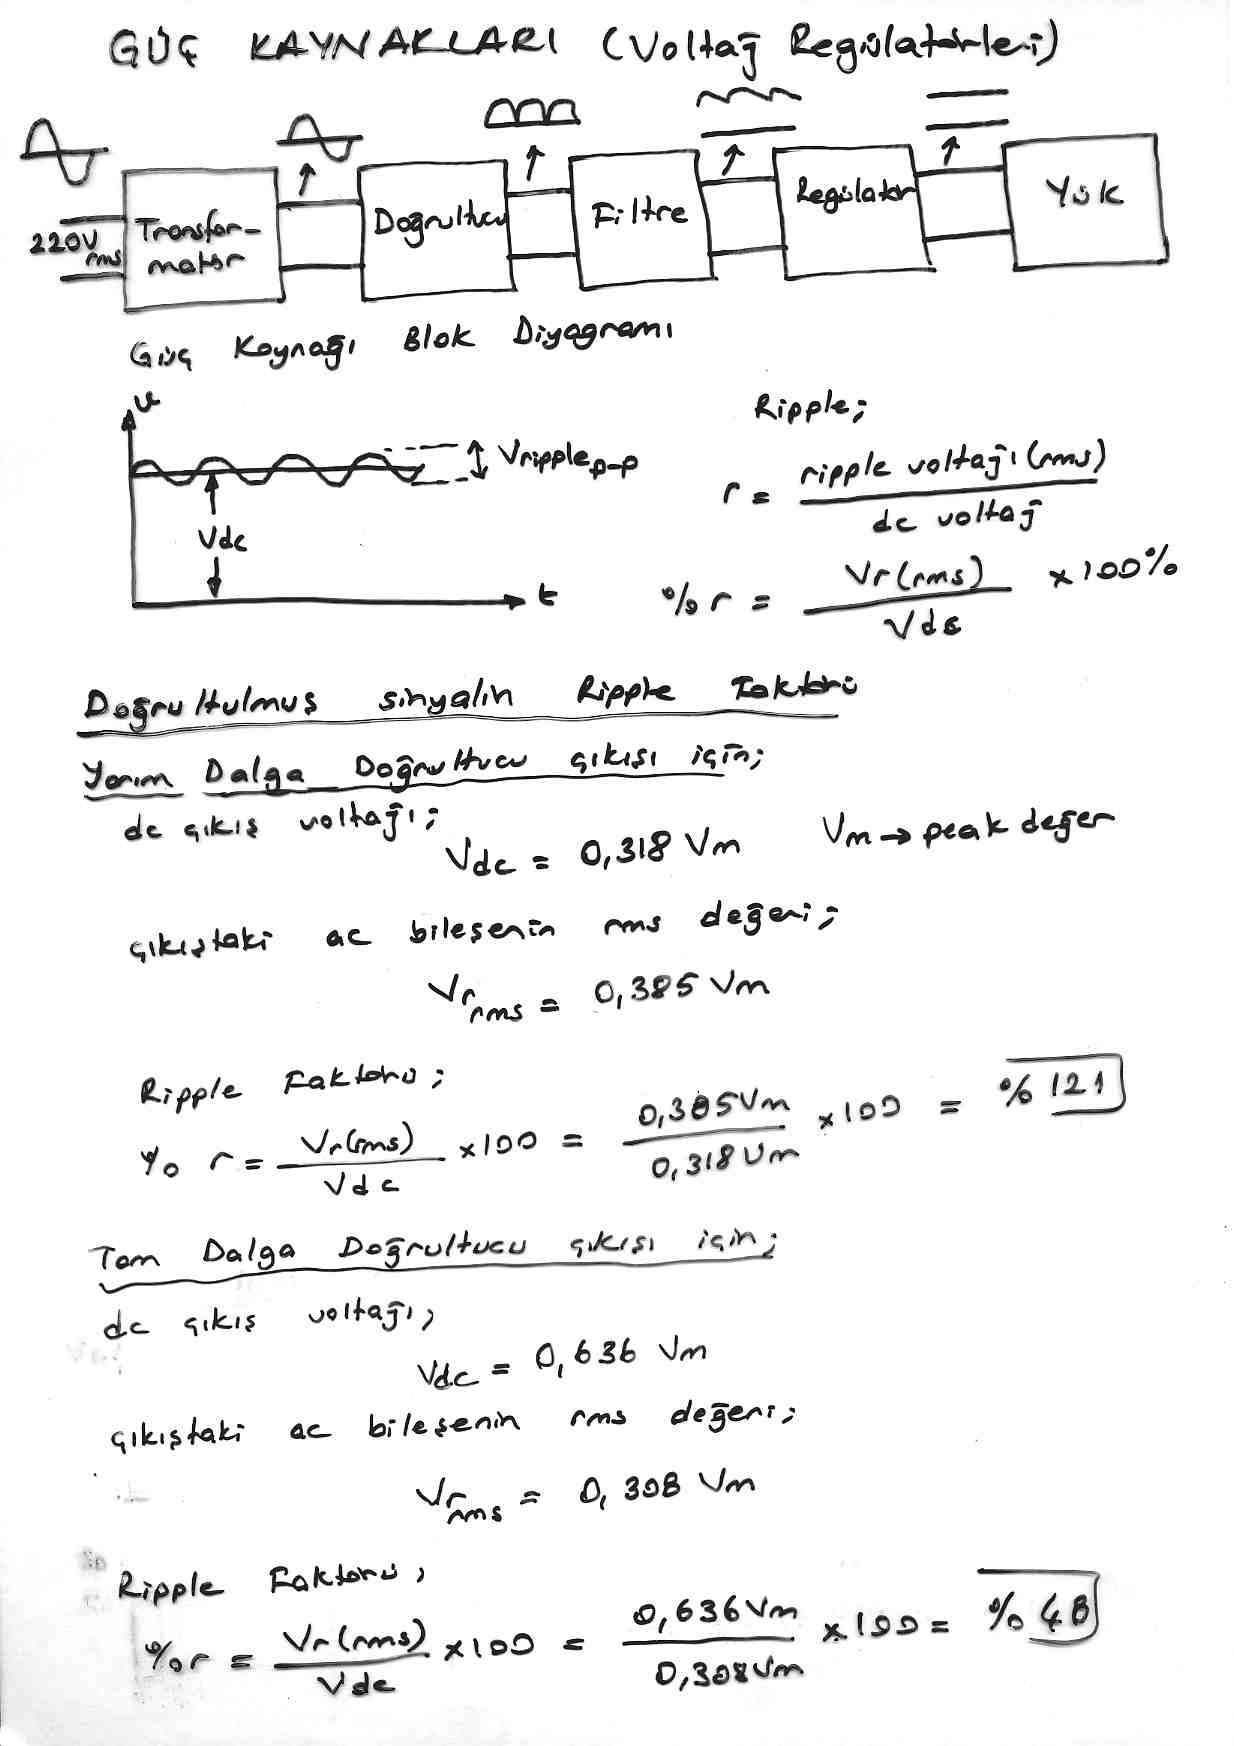 GÜÇ KAYNAKLARI (Voltaj Regülatörleri)
220V rms
Transfor-
matör
Doğrultucu
Filtre
Regülatör
Yük
Güç Kaynağı Blok Diyagramı
v
Vripple p-p
Vdc
t
Ripple;
r = ripple voltajı (rms) / dc voltaj
% r = Vr(rms) / Vdc x 100%
Doğrultulmuş sinyalin Ripple Faktörü
Yarım Dalga Doğrultucu çıkışı için;
dc çıkış voltajı;
Vdc = 0,318 Vm Vm → peak değer
çıkıştaki ac bileşenin rms değeri;
Vr rms = 0,385 Vm
Ripple Faktörü;
% r = Vr(rms) / Vdc x100 = 0,385Vm / 0,318Vm x100 = %121
Tam Dalga Doğrultucu çıkışı için;
dc çıkış voltajı;
Vdc = 0,636 Vm
çıkıştaki ac bileşenin rms değeri;
Vr rms = 0,308 Vm
Ripple Faktörü;
%r = Vr(rms) / Vdc x100 = 0,636Vm / 0,308Vm x100 = %48